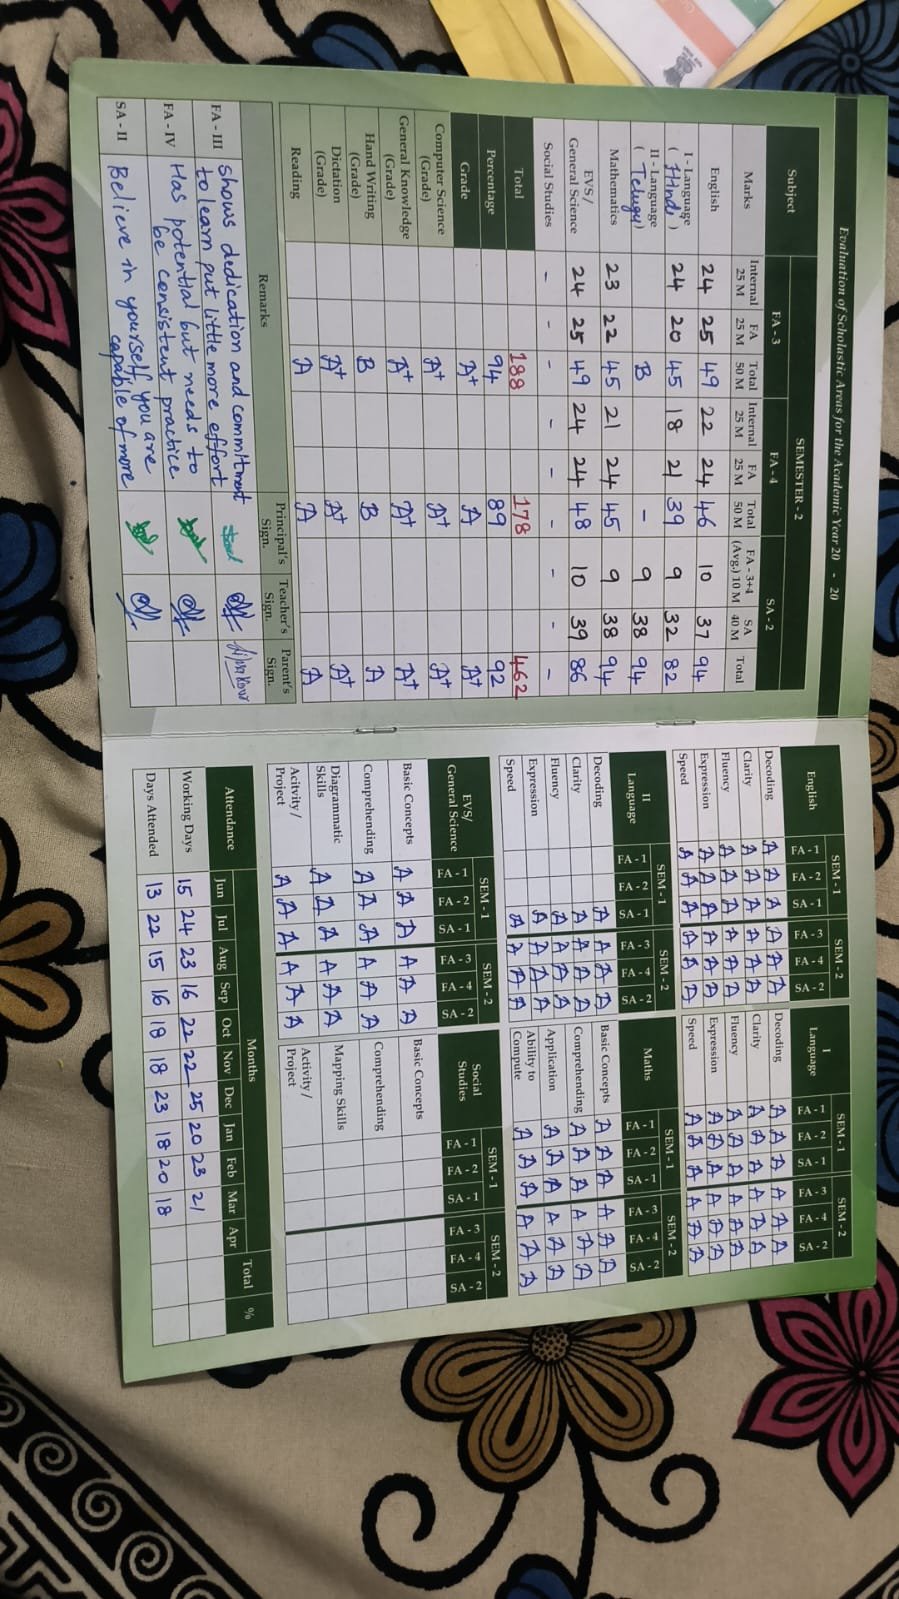 Evaluation of Scholastic Areas for the Academic Year 20 - 20
Subject SEMESTER - 2
FA - 3 FA - 4 SA - 2
Marks Internal 25 M FA 25 M Total 50 M Internal 25 M FA 25 M Total 50 M FA - 3+4 (Avg.) 10 M SA 40 M Total
English 24 25 49 22 24 46 10 37 94
I - Language (Hindi) 24 20 45 18 21 39 9 32 82
II - Language (Telugu) B - 9 38 94
Mathematics 23 22 45 21 24 45 9 38 94
EVS/ General Science 24 25 49 24 24 48 10 39 86
Social Studies - - - - - - - - -
Total 188 178 462
Percentage 94 89 92
Grade A+ A A+
Computer Science (Grade) A+ A+ A+
General Knowledge (Grade) A+ A+ A+
Hand Writing (Grade) B B A
Dictation (Grade) A+ A+ A+
Reading A A A
Remarks Principal's Sign. Teacher's Sign. Parent's Sign.
FA - III Shows dedication and commitment
to learn put little more effort
FA - IV Has potential but needs to
be consistent practice
SA - II Believe in yourself you are
capable of more
English SEM - 1 SEM - 2
FA - 1 FA - 2 SA - 1 FA - 3 FA - 4 SA - 2
Decoding A A A A A A
Clarity A A A A A A
Fluency A A A A A A
Expression A A A A A A
Speed A A A A A A
I Language SEM - 1 SEM - 2
FA - 1 FA - 2 SA - 1 FA - 3 FA - 4 SA - 2
Decoding A A A A A A
Clarity A A A A A A
Fluency A A A A A A
Expression A A A A A A
Speed A A A A A A
II Language SEM - 1 SEM - 2
FA - 1 FA - 2 SA - 1 FA - 3 FA - 4 SA - 2
Decoding A A A A
Clarity A A A A
Fluency A A A A
Expression A A A A
Speed A A A A
Maths SEM - 1 SEM - 2
FA - 1 FA - 2 SA - 1 FA - 3 FA - 4 SA - 2
Basic Concepts A A A A A A
Comprehending A A A A A A
Application A A A A A A
Ability to Compute A A A A A A
EVS/ General Science SEM - 1 SEM - 2
FA - 1 FA - 2 SA - 1 FA - 3 FA - 4 SA - 2
Basic Concepts A A A A A A
Comprehending A A A A A A
Diagrammatic Skills A A A A A A
Acitvity / Project A A A A A A
Social Studies SEM - 1 SEM - 2
FA - 1 FA - 2 SA - 1 FA - 3 FA - 4 SA - 2
Basic Concepts
Comprehending
Mapping Skills
Activity / Project
Attendance Months Total %
Jun Jul Aug Sep Oct Nov Dec Jan Feb Mar Apr
Working Days 15 24 23 16 22 22 25 20 23 21
Days Attended 13 22 15 16 18 18 23 18 20 18